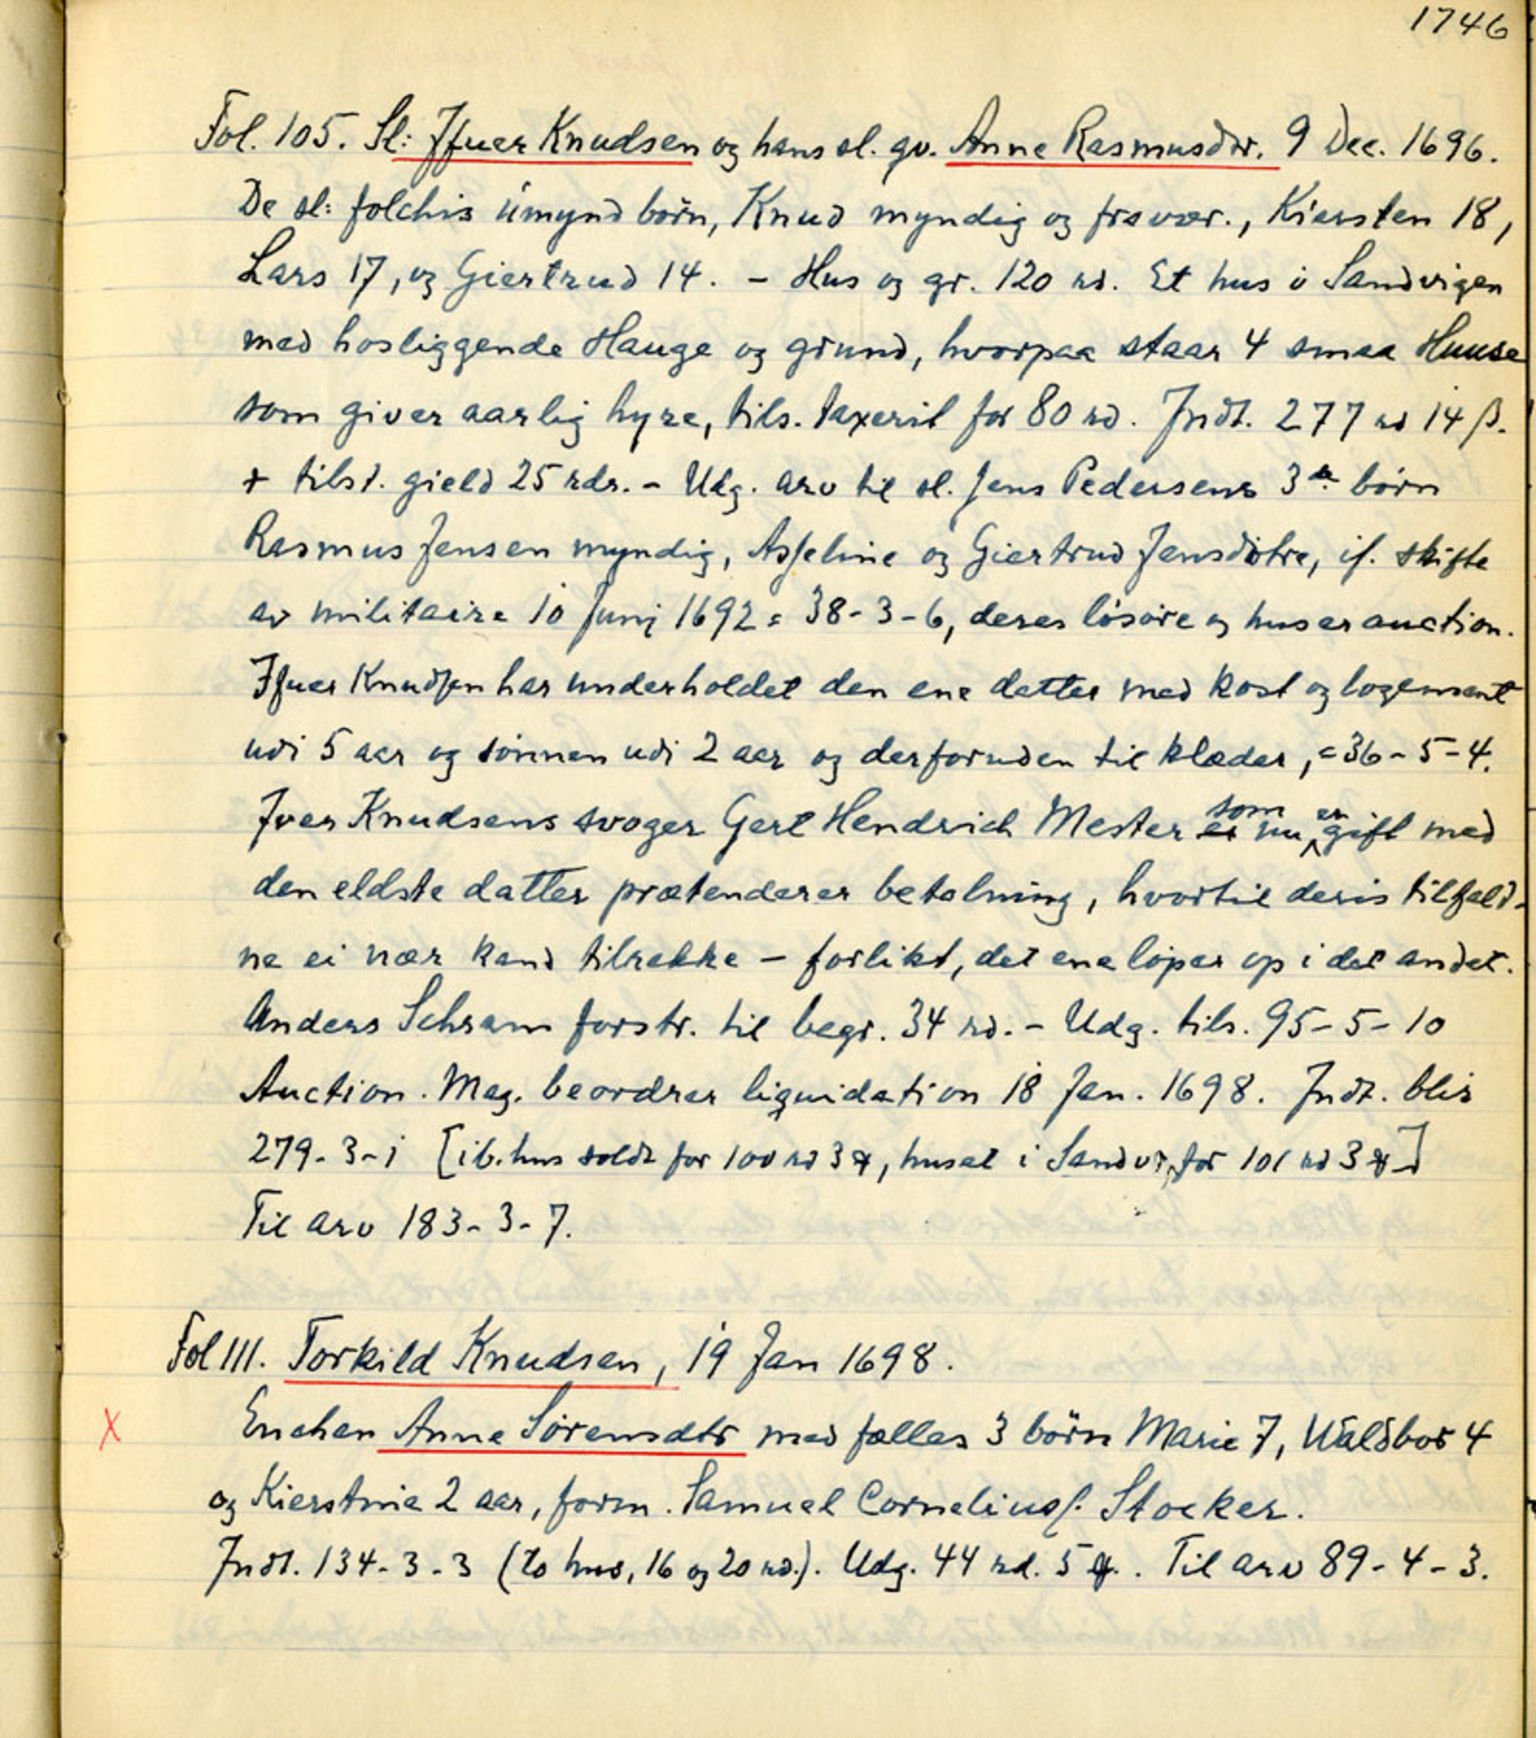 1746
Fol. 105. Sl: Jfuer Knudsen og hans sl. qv. Anne Rasmusdtr. 9 Dec. 1696.
De sl: folchis umynd börn, Knud myndig og fravær., Kiersten 18,
Lars 17, og Giertrud 14. - Hus og gr. 120 rd. Et hus i Sandvigen
med hosliggende Hauge og grund, hvorpaa staar 4 smaa Huuse
som giver aarlig hyre, tils. taxerit for 80 rd. Jndt. 277 rd 14 β.
+ tilst. gield 25 rdr. - Udg. arv til sl. Jens Pedersens 3de börn
Rasmus Jensen myndig, Asseline og Giertrud Jensdötre, if. skifte
av militaire 10 Junj 1692 = 38-3-6, deres lösöre og huser auction.
Jfuer Knudsen har underholdet den ene datter med kost og logement
udi 5 aar og sönnen udi 2 aar og desforuden til klæder, = 36-5-4.
Jver Knudsens svoger Gert Hendrich Mester som nu er gift med
den eldste datter prætenderer betalning, hvortil deris tilfald-
ne ei nær kand tilrekke - forlikt, det ene löper op i det andet.
Anders Schram forstr. til begr. 34 rd. - Udg. tils. 95-5-10
Auction. Mag. beordrer liquidation 18 Jan. 1698. Jndt. blir
279-3-1 [ib. hus soldt for 100 rd 3 ꝸ, huset i Sandv. for 101 rd 3 ꝸ]
Til arv 183-3-7.
Fol 111. Torkild Knudsen, 19 Jan 1698.
X Enchen Anne Sörensdtr med fælles 3 börn Marie 7, Waldbor 4
og Kierstine 2 aar, form. Samuel Corneliuss. Stocker.
Jndt. 134-3-3 (to hus, 16 og 20 rd.). Udg. 44 rd. 5 ꝸ. Til arv 89-4-3.